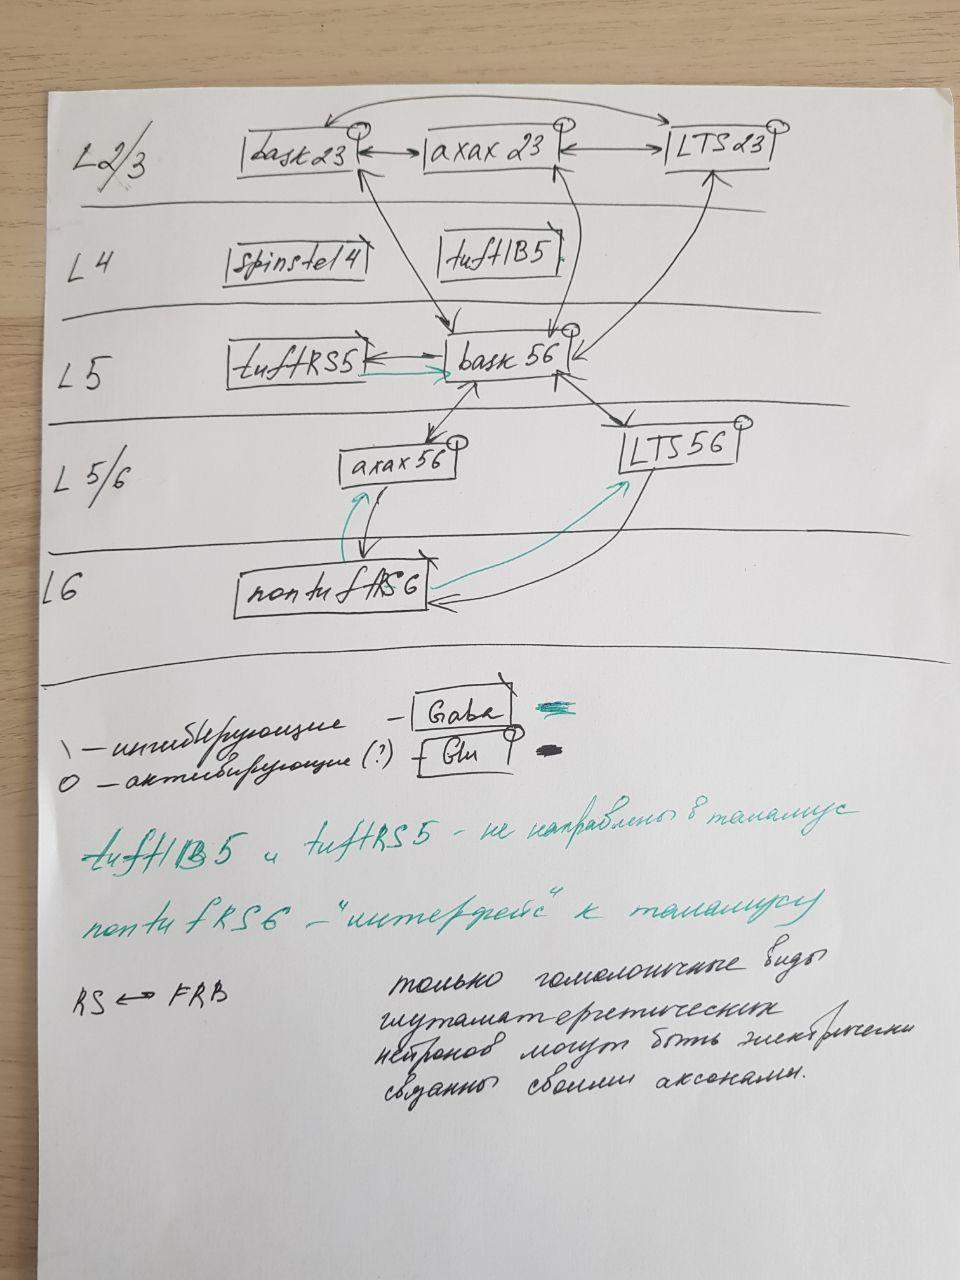 L2/3 bask23 axax 23 LTS23
L4 spinstel4 tuftIB5
L5 tuftRS5 bask 56
L 5/6 axax56 LTS56
L6 nontuftRS6
\ – ингибирующие – Gaba
O – активирующие (?) – Glu
tuftIB5 и tuftRS5 – не направлены в таламус
nontufRS6 – "интерфейс" к таламусу
RS ↔ FRB
только гомологичные виды
глутаматергетических
нейронов могут быть электрически
связанны своими аксонами.